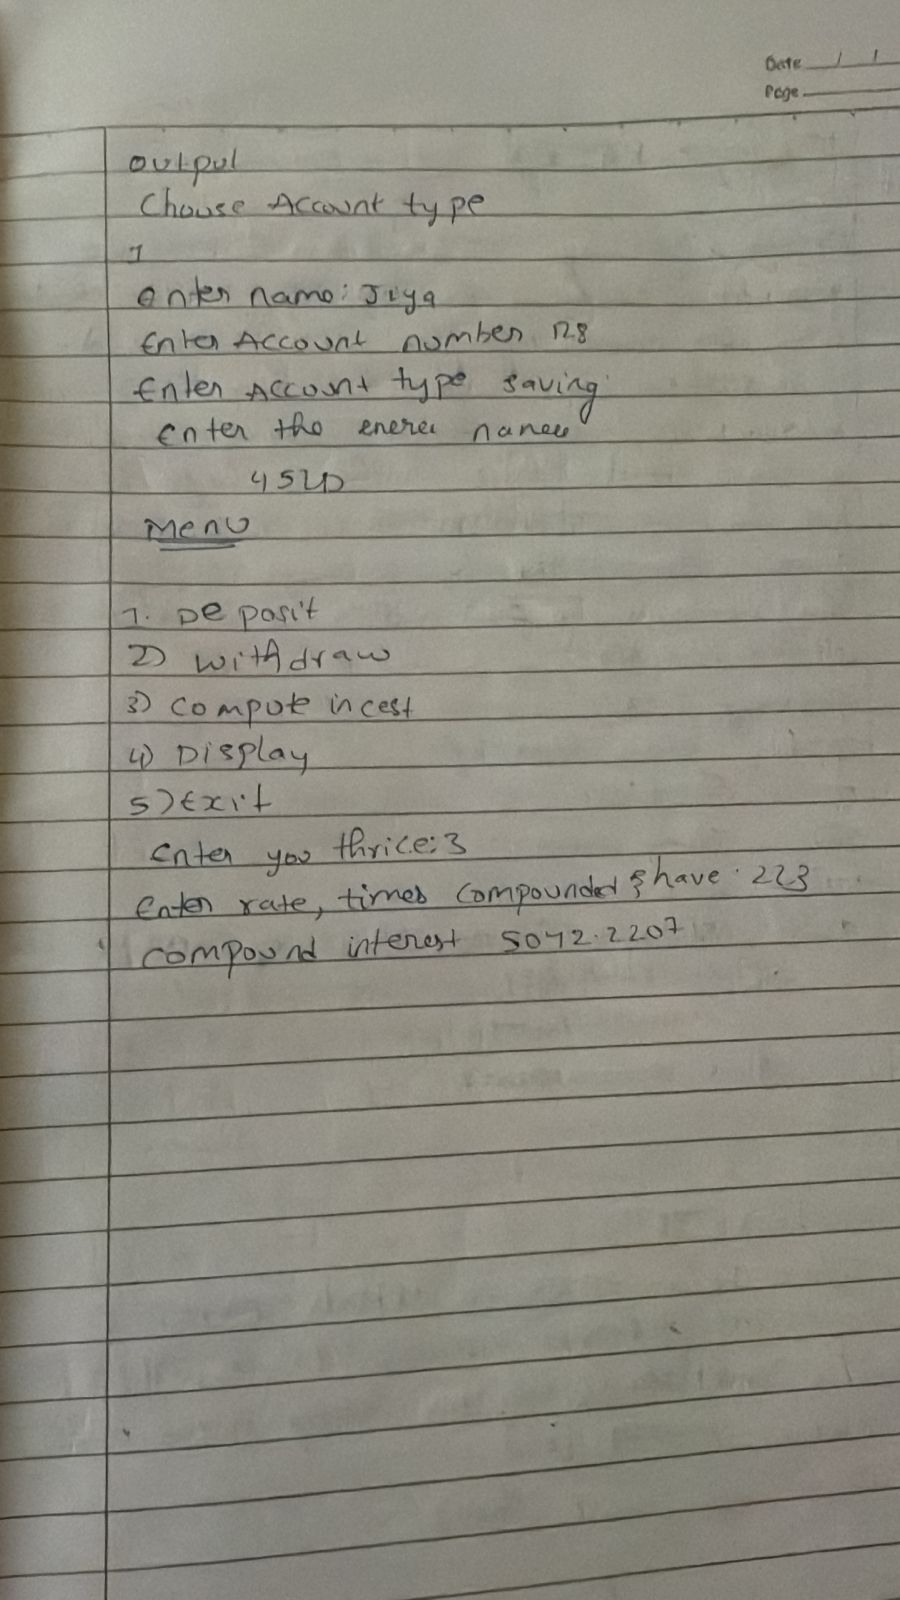 Date / /
Page
output
Choose Account type
1
enter name: Jiya
Enter Account number 128
Enter Account type saving
Enter the
Menu
1. Deposit
2) withdraw
3) compute incest
4) Display
5) Exit
Enter you thrice: 3
Enter rate, times compounded & have 223
compound interest 5042.2207